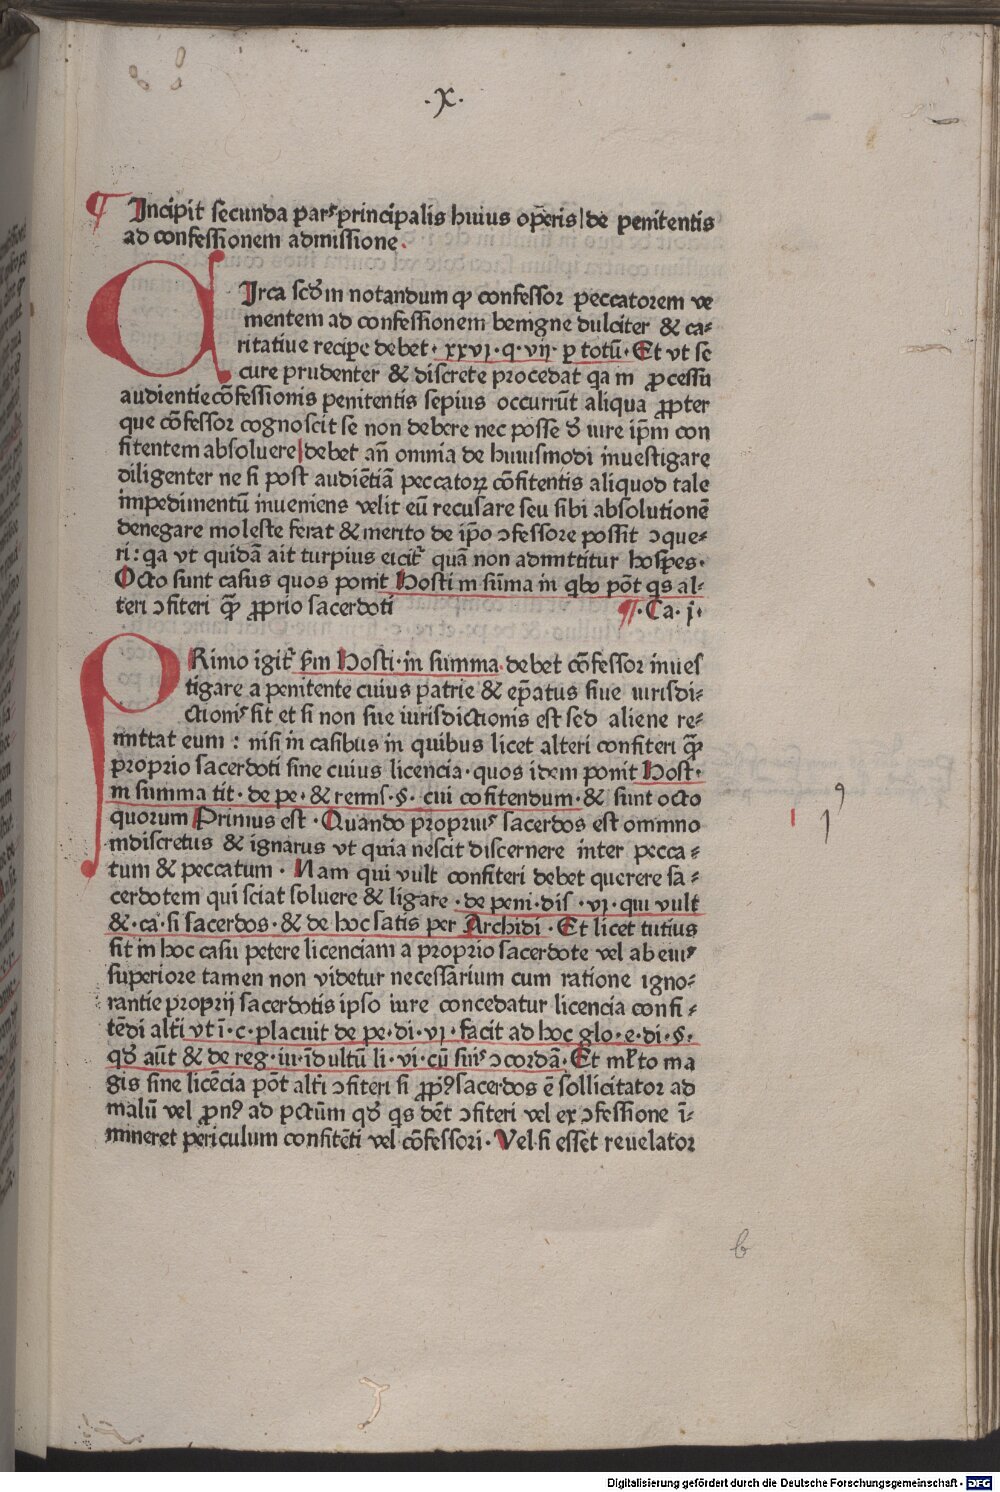 .x.
¶ Incipit secunda pars principalis huius oꝑeris de penitentis
ad confessionem admissione.
CIrca scdm notandum ꝙ confessor peccatorem ve
mentem ad confessionem benigne dulciter & ca-
ritatiue recipe debet. xxvi. q. vii. ꝑ totū. Et vt se
cure prudenter & discrete procedat qa in ꝓcessu
audientie cōfessionis penitentis sepius occurrūt aliqua ꝓpter
que cōfessor cognoscit se non debere nec posse de iure ip̄m con
fitentem absoluere debet an̄ omnia de huiusmodi inuestigare
diligenter ne si post audiētiā peccatoꝝ cōfitentis aliquod tale
impedimentū inueniens velit eū recusare seu sibi absolutionē
denegare moleste ferat & merito de ip̄o ꝯfessore possit ꝯque-
ri: qa vt quidā ait turpius eicit̄ quā non admittitur hospes.
Octo sunt casus quos ponit Hosti in sūma in qbo pōt qs al-
teri ꝯfiteri ꝙ̄ ꝓprio sacerdoti ¶. Ca. j.
PRimo igit̄ ẜm Hosti. in summa. debet cōfessor inues
tigare a penitente cuius patrie & ep̄atus siue iurisdi-
ctionis sit et si non sue iurisdictionis est sed aliene re-
mittat eum: nisi in casibus in quibus licet alteri confiteri ꝙ̄
proprio sacerdoti sine cuius licencia. quos idem ponit Host.
in summa tit. de pe. & remis. §. cui cofitendum. & sunt octo
quorum Primus est. Quando proprius sacerdos est omnino
indiscretus & ignarus vt quia nescit discernere inter pecca-
tum & peccatum. Nam qui vult confiteri debet querere sa-
cerdotem qui sciat soluere & ligare. de peni. dis. vi. qui vult
& ca. si sacerdos. & de hoc satis per Archidi. Et licet tutius
sit in hoc casu petere licenciam a proprio sacerdote vel ab eius
superiore tamen non videtur necessarium cum ratione igno-
rantie proprij sacerdotis ipso iure concedatur licencia confi-
tēdi alt̄i vt ī. c. placuit de pe. di. vi. facit ad hoc glo. e. di. §.
qd aūt & de reg. iu. īdultū li. vi. cū suis ꝯcordā. Et ml̄to ma
gis sine licēcia pōt alt̄i ꝯfiteri si ꝓpꝰ sacerdos ē sollicitator ad
malū vel ꝓnꝰ ad pctūm qd qs dēt ꝯfiteri vel ex ꝯfessione ī-
mineret periculum confitēti vel cōfessori. Vel si esset reuelator
b
Digitalisierung gefördert durch die Deutsche Forschungsgemeinschaft - DFG